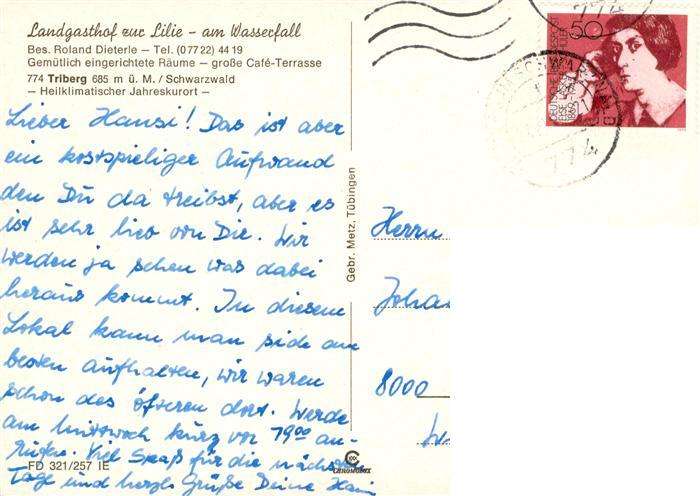 Landgasthof zur Lilie – am Wasserfall
Bes. Roland Dieterle – Tel. (0 77 22) 44 19
Gemütlich eingerichtete Räume – große Café-Terrasse
774 Triberg 685 m ü. M. / Schwarzwald
– Heilklimatischer Jahreskurort –
Lieber Hansi! Das ist aber
ein kostspieliger Aufwand
den Du da treibst, aber es
ist sehr lieb von Dir. Wir
werden ja sehen was dabei
heraus kommt. In diesem
Lokal kann man sich am
besten aufhalten, wir waren
schon des öfteren dort. Werde
am Mittwoch kurz vor 1900 an-
rufen. Viel Spaß für die nächsten
Tage und herzl. Grüße Deine
FD 321/257 IE
Gebr. Metz, Tübingen
50
774
Herrn
Joha
8000